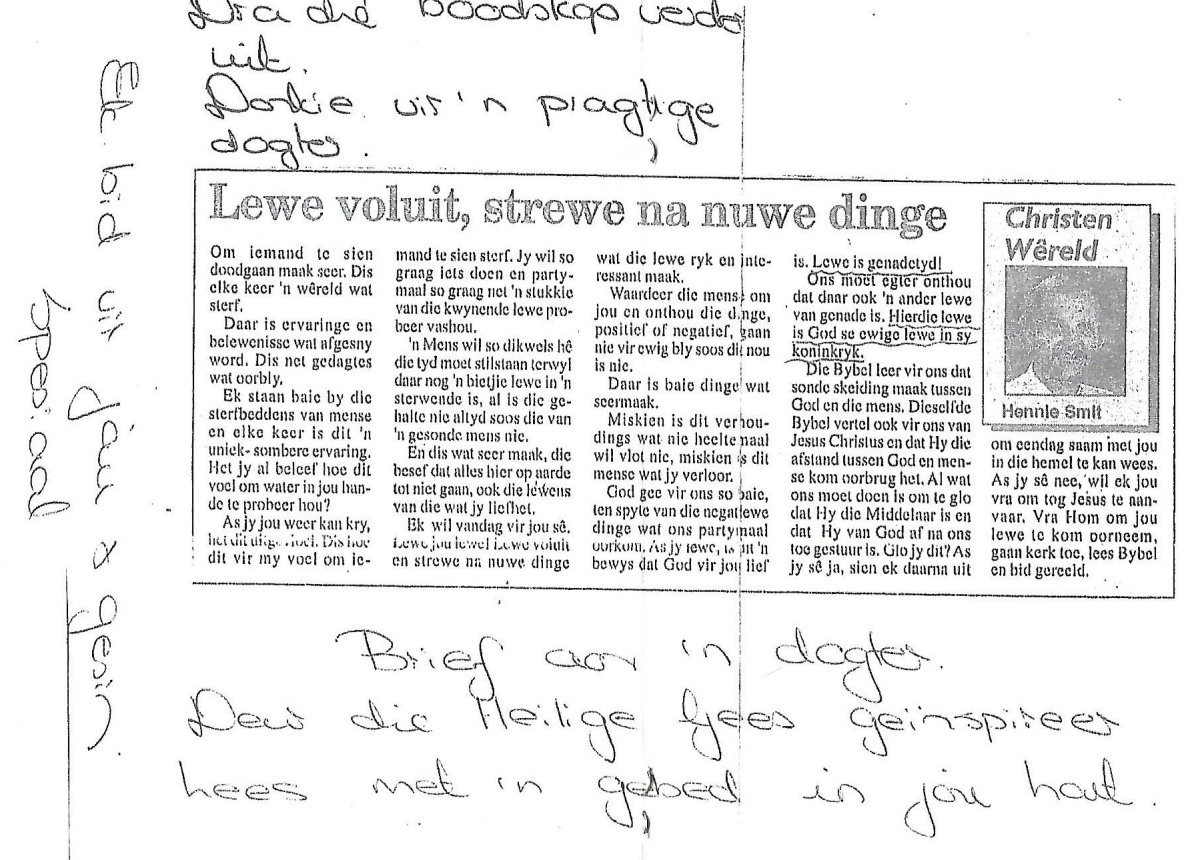 Dra die boodskap verder
uit.
Dankie vir 'n pragtige
dogter.
Ek bid vir jou & gesin
spesiaal
Lewe voluit, strewe na nuwe dinge
Om iemand te sien
doodgaan maak seer. Dis
elke keer 'n wêreld wat
sterf.
Daar is ervaringe en
belewenisse wat afgesny
word. Dis net gedagtes
wat oorbly.
Ek staan baie by die
sterfbeddens van mense
en elke keer is dit 'n
uniek-sombere ervaring.
Het jy al beleef hoe dit
voel om water in jou han-
de te probeer hou?
As jy jou weer kan kry,
het dit uitg. Dis hoe
dit vir my voel om ie-
mand te sien sterf. Jy wil so
graag iets doen en party-
maal so graag net 'n stukkie
van die kwynende lewe pro-
beer vashou.
'n Mens wil so dikwels hê
die tyd moet stilstaan terwyl
daar nog 'n bietjie lewe in 'n
sterwende is, al is die ge-
halte nie altyd soos die van
'n gesonde mens nie.
En dis wat seer maak, die
besef dat alles hier op aarde
tot niet gaan, ook die lewens
van die wat jy liefhet.
Ek wil vandag vir jou sê.
Lewe jou lewe! Lewe voluit
en strewe na nuwe dinge
wat die lewe ryk en inte-
ressant maak.
Waardeer die mense om
jou en onthou die dinge,
positief of negatief, gaan
nie vir ewig bly soos dit nou
is nie.
Daar is baie dinge wat
seermaak.
Miskien is dit verhou-
dings wat nie heeltemaal
wil vlot nie, miskien is dit
mense wat jy verloor.
God gee vir ons so baie,
ten spyte van die negatiewe
dinge wat ons partymaal
oorkom. As jy lewe, is dit 'n
bewys dat God vir jou lief
is. Lewe is genadetyd!
Ons moet egter onthou
dat daar ook 'n ander lewe
van genade is. Hierdie lewe
is God se ewige lewe in sy
koninkryk.
Die Bybel leer vir ons dat
sonde skeiding maak tussen
God en die mens. Dieselfde
Bybel vertel ook vir ons van
Jesus Christus en dat Hy die
afstand tussen God en men-
se kom oorbrug het. Al wat
ons moet doen is om te glo
dat Hy die Middelaar is en
dat Hy van God af na ons
toe gestuur is. Glo jy dit? As
jy sê ja, sien ek daarna uit
Christen
Wêreld
Hennie Smit
om eendag saam met jou
in die hemel te kan wees.
As jy sê nee, wil ek jou
vra om tog Jesus te aan-
vaar. Vra Hom om jou
lewe te kom oorneem,
gaan kerk toe, lees Bybel
en bid gereeld.
Brief aan 'n dogter.
Deur die Heilige Gees geïnspireer
Lees met 'n gebed in jou hart.